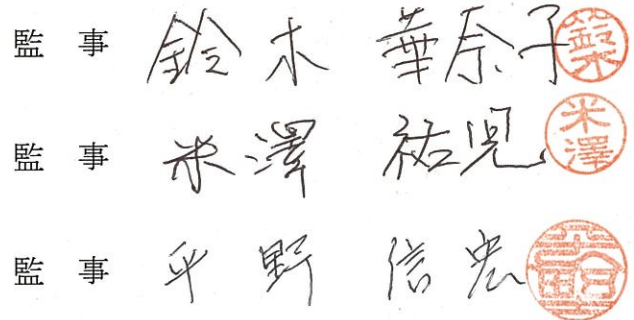 監 事 鈴木 華奈子 鈴木
監 事 米澤 祐児 米澤
監 事 平野 信宏